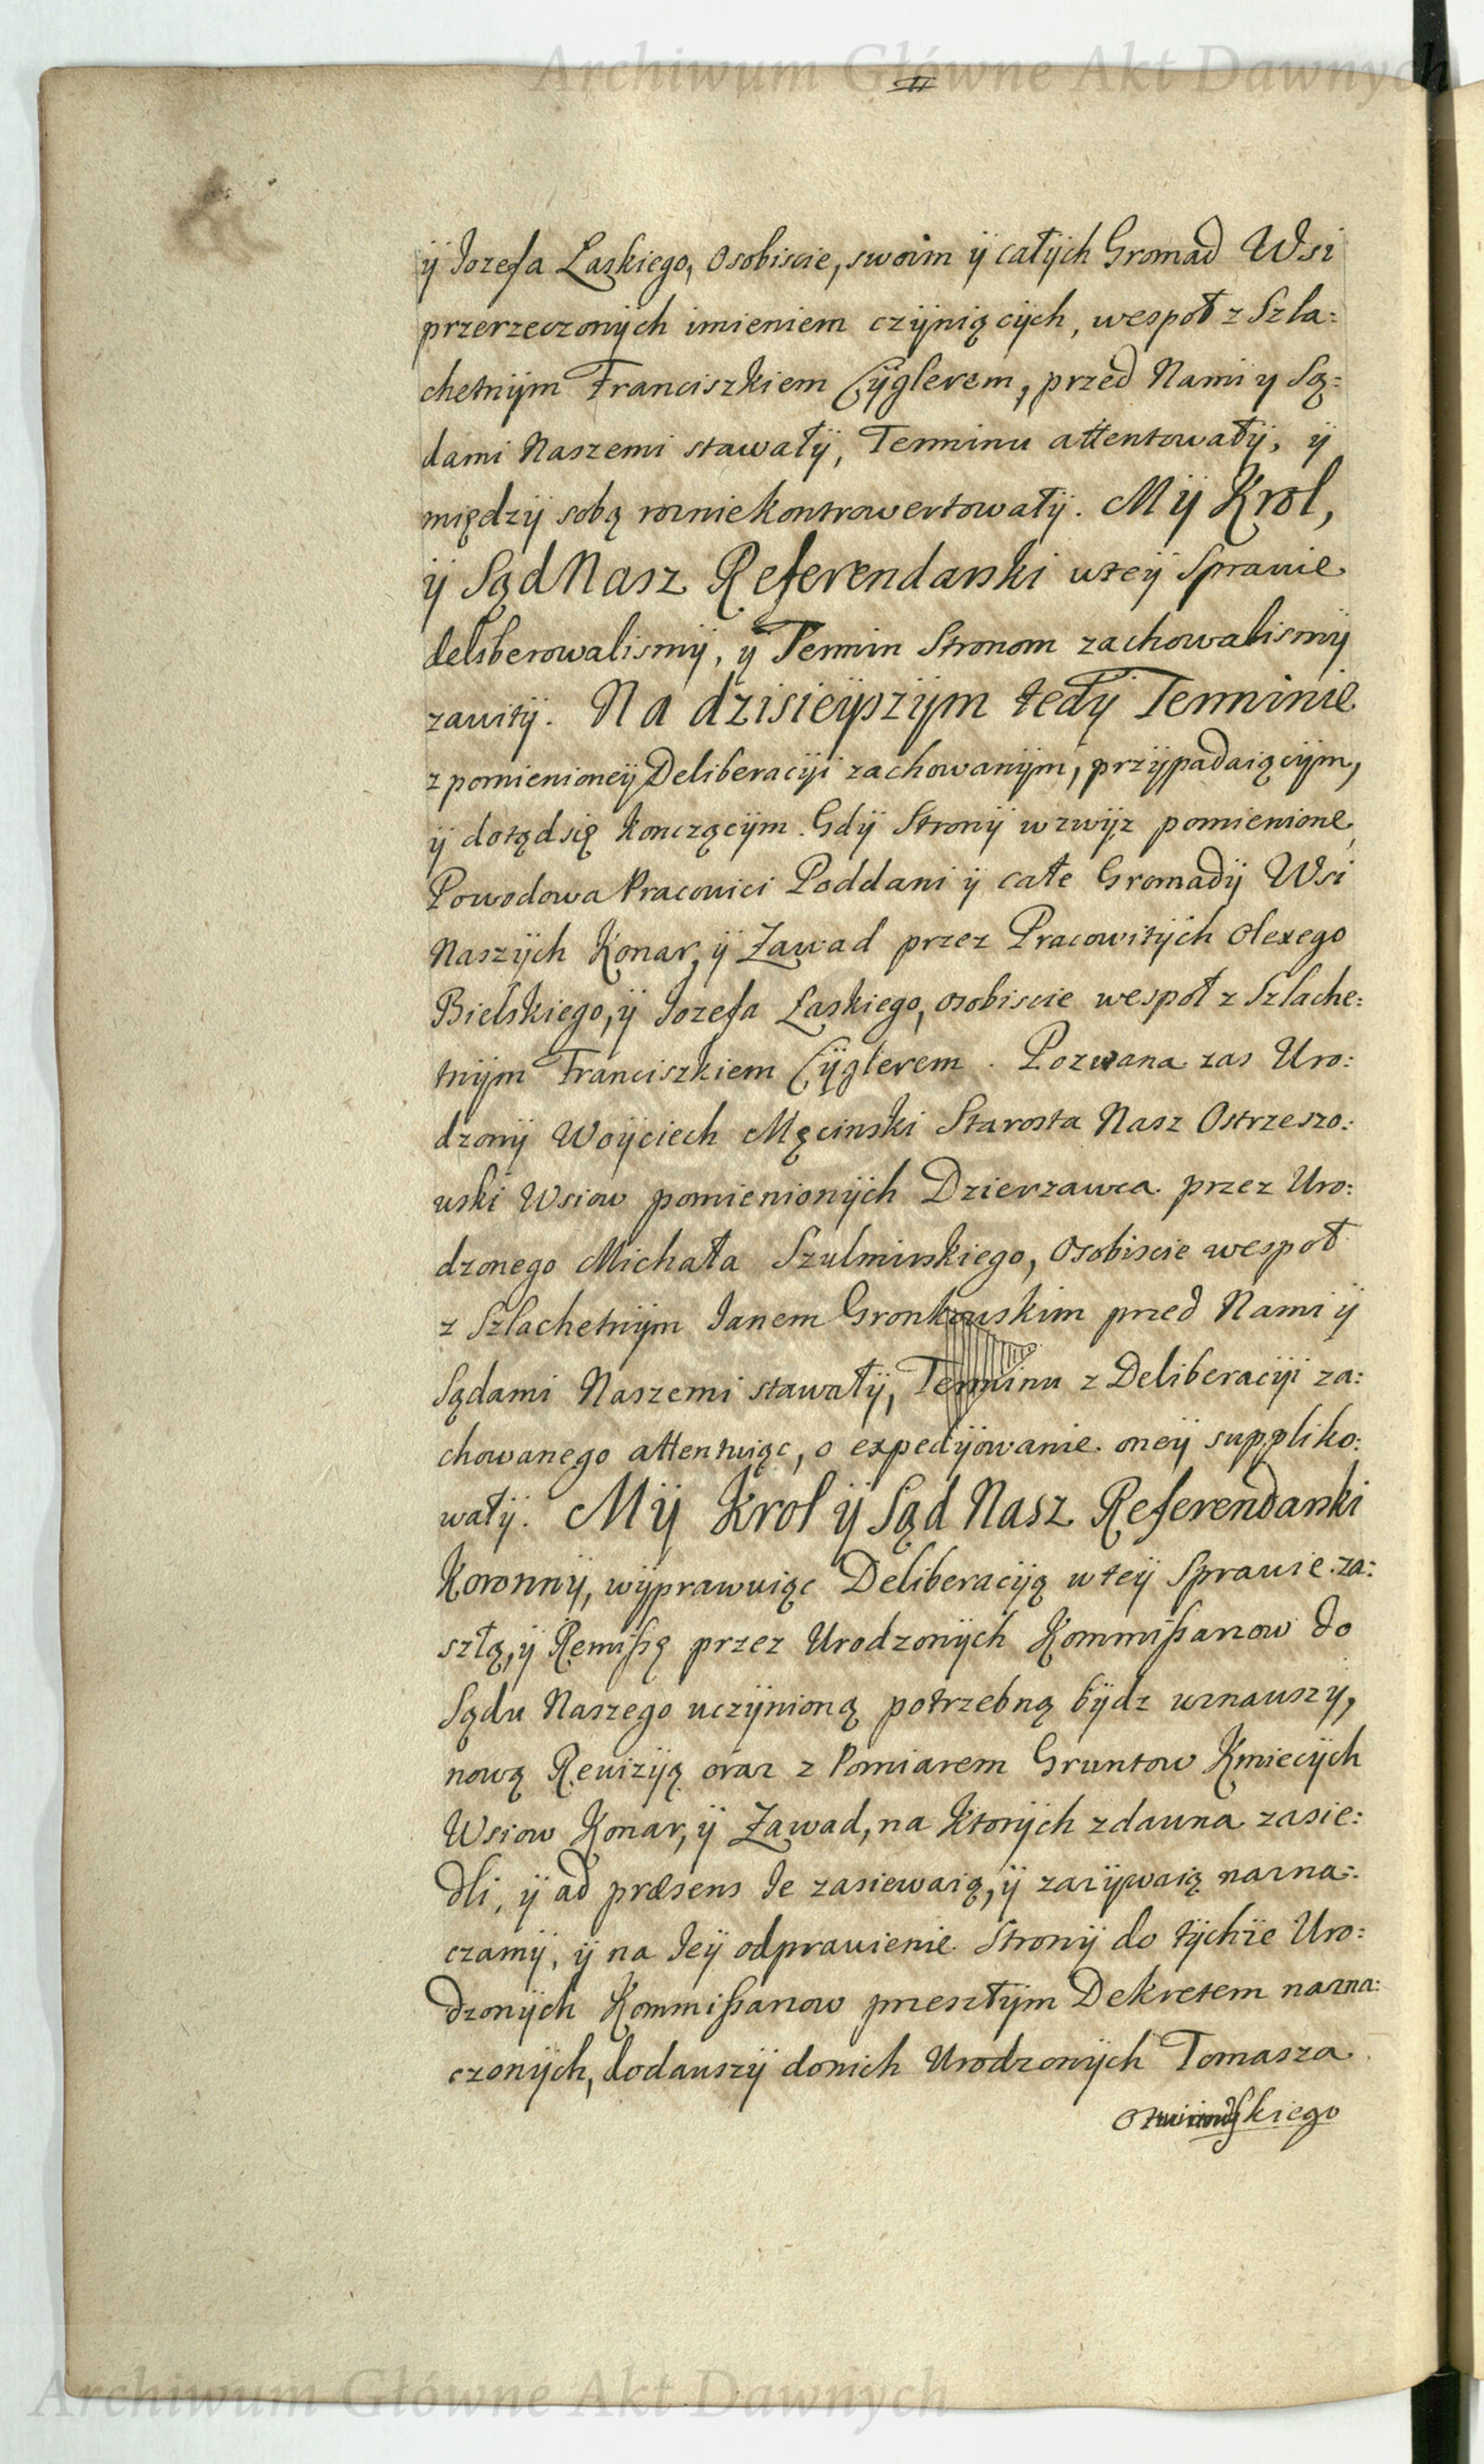 Archiwum Główne Akt Dawnych
ÿ Jozefa Laskiego, Osobiscie, swoim ÿ całÿch Gromad Wsi
przerzeczonÿch imieniem czÿniącÿch, wespoł z Szla:
chetnÿm Franciszkiem Cÿglerem, przed Nami y Są:
dami Naszemi stawałÿ, Terminu attentowałÿ, ÿ
międzÿ sobą roznie kontrowertowałÿ. Mÿ Krol,
ÿ Sąd Nasz Referendarski w teÿ Sprawie
deliberowalismÿ, ÿ Termin Stronom zachowalismÿ
zawitÿ. Na dzisieÿszÿm tedÿ Terminie
z pomienioneÿ Deliberacÿi zachowanÿm, przÿpadaiącÿm,
ÿ dotąd się konczącÿm. Gdÿ Stronÿ wzwÿz pomienione,
Powodowa Pracowici Poddani ÿ całe Gromadÿ Wsi
Naszÿch Konar, ÿ Zawad przez Pracowitÿch Olexego
Bielskiego, ÿ Jozefa Laskiego, osobiscie wespoł z Szlache:
tnÿm Franciszkiem Cÿglerem. Pozwana zas Uro:
dzonÿ Woÿciech Męcinski Starosta Nasz Ostrzeszo:
wski Wsiow pomienionÿch Dzierzawca przez Uro:
dzonego Michała Szulminskiego, Osobiscie wespoł
z Szlachetnÿm Janem Gronkowskim przed Nami ÿ
Sądami Naszemi stawałÿ, Terminu z Deliberacÿi za:
chowanego attentuiąc, o expedÿowanie oneÿ suppliko:
wałÿ. Mÿ Krol ÿ Sąd Nasz Referendarski
Koronnÿ, wÿprawuiąc Deliberacÿą w teÿ Sprawie za:
szłą, ÿ Remißę przez Urodzonÿch Kommißarzow do
Sądu Naszego uczÿnioną potrzebną bÿdz uznawszy,
nową Rewizÿą oraz z Pomiarem Gruntow Kmiecÿch
Wsiow Konar, ÿ Zawad, na ktorÿch zdawna zasie:
dli, ÿ ad præsens Je zasiewaią, ÿ zazÿwaią nazna:
czamÿ, ÿ na Jeÿ odprawienie Stronÿ do tÿchże Uro:
dzonÿch Kommißarzow przeszłÿm Dekretem nazna:
czonÿch, dodawszÿ do nich Urodzonÿch Tomasza
Archiwum Główne Akt Dawnych